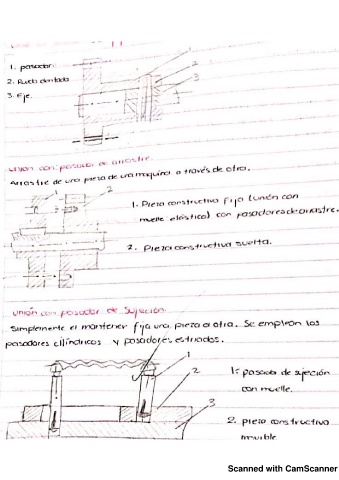 1. pasador
2. Rueda dentada
3. Eje.
1
2
3
Unión con pasador de arrastre.
Arrastre de una pieza de una maquina a través de otra.
1
2
1. Pieza constructiva fija (unión con
muelle elástica) con pasadores de arrastre.
2. Pieza constructiva suelta.
Unión con pasador de sujeción
Simplemente el mantener fija una pieza a otra. Se emplean los
pasadores cilíndricos y pasadores estriados.
1
2
3
1: pasado de sujeción
con muelle.
2. pieza constructiva
movible
Scanned with CamScanner